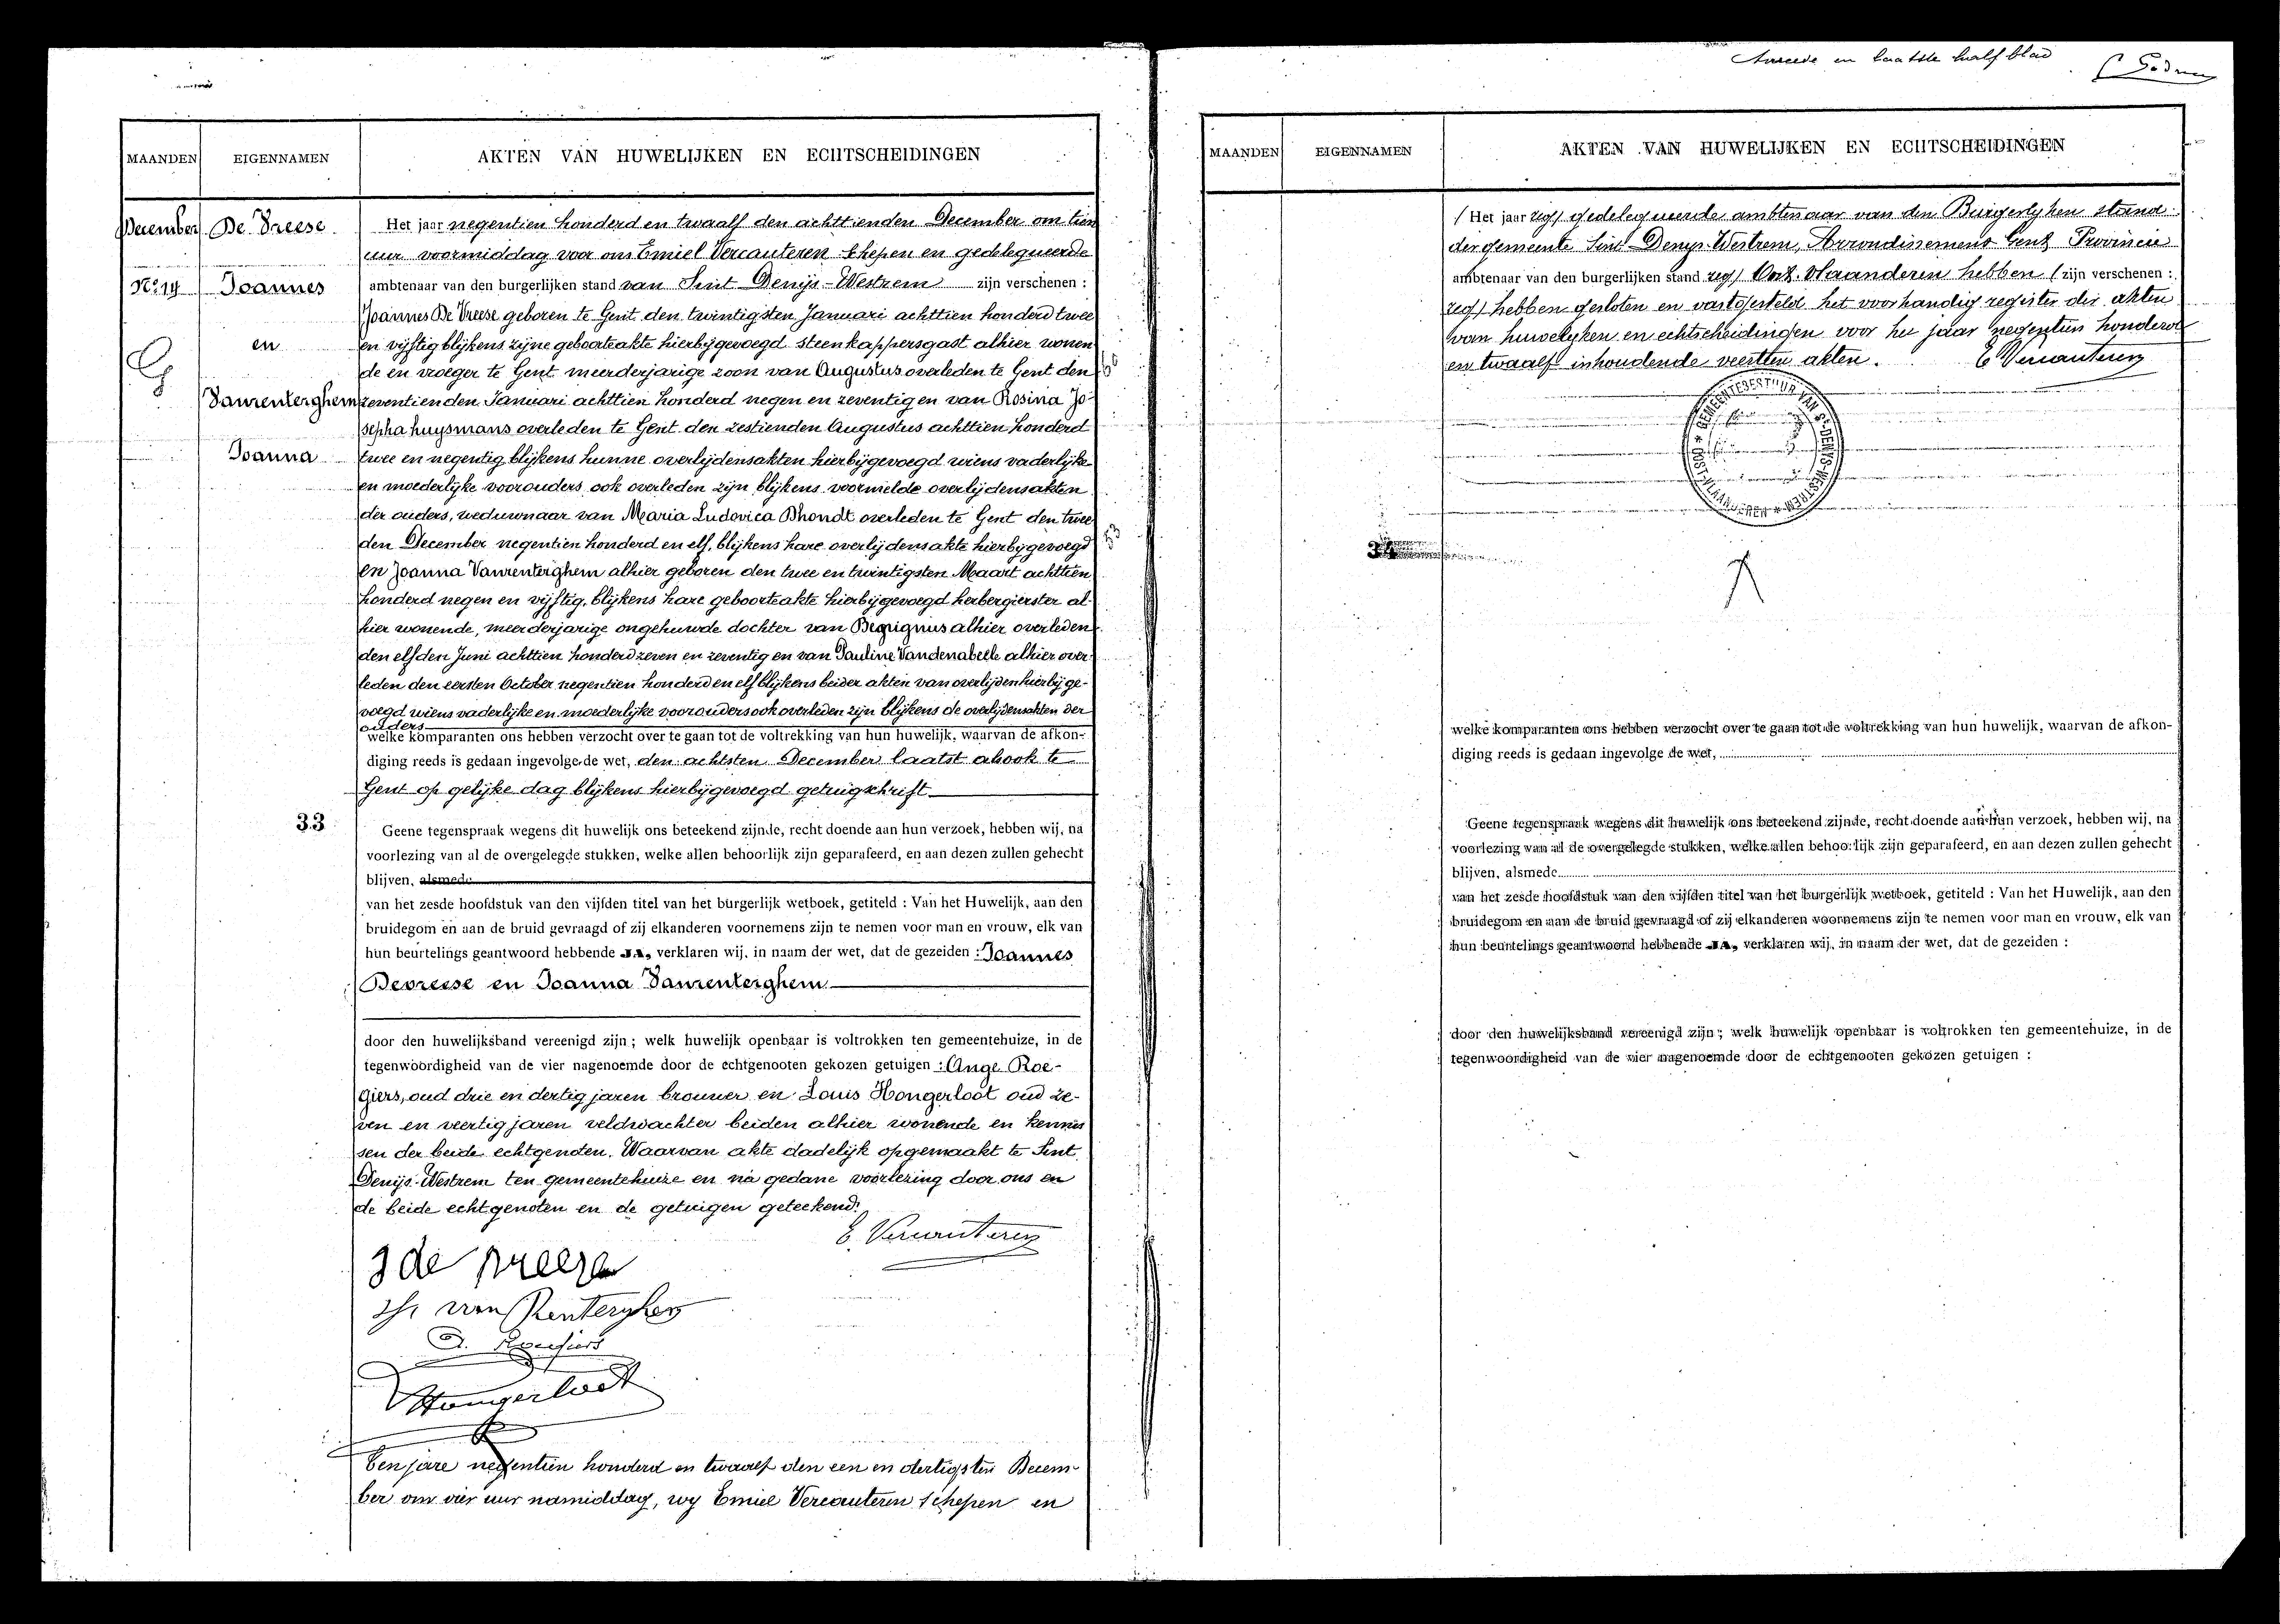 MAANDEN EIGENNAMEN AKTEN VAN HUWELIJKEN EN ECHTSCHEIDINGEN
December De Vreese
No. 14 Joannes
en
Vanrenterghem
Joanna
Het jaar negentien honderd en twaalf den achttienden December om tien
uur voormiddag voor ons Emiel Vercauteren schepen en gedelegueerde
ambtenaar van den burgerlijken stand van Sint Denijs-Westrem zijn verschenen :
Joannes De Vreese geboren te Gent den twintigsten Januari achttien honderd twee
en vijftig blijkens zijne geboorteakte hierbijgevoegd steenkappersgast alhier wonen
de en vroeger te Gent meerderjarige zoon van Augustus overleden te Gent den
zeventienden Januari achttien honderd negen en zeventig en van Rosina Jo-
sepha huysmans overleden te Gent den zestienden Augustus achttien honderd
twee en negentig blijkens hunne overlijdensakten hierbijgevoegd wiens vaderlijke
en moederlijke voorouders ook overleden zijn blijkens voormelde overlijdensakten
der ouders, weduwnaar van Maria Ludovica Dhondt overleden te Gent den twee
den December negentien honderd en elf, blijkens hare overlijdensakte hierbijgevoegd
en Joanna Vanrenterghem alhier geboren den twee en twintigsten Maart achttien
honderd negen en vijftig, blijkens hare geboorteakte hierbijgevoegd herbergierster al-
hier wonende, meerderjarige ongehuwde dochter van Benignus alhier overleden
den elfden Juni achttien honderd zeven en zeventig en van Pauline Vandenabeele alhier over-
leden den eersten October negentien honderd en elf blijkens beider akten van overlijden hierbij ge-
voegd wiens vaderlijke en moederlijke voorouders ook overleden zijn blijkens de overlijdensakten der
ouders
welke komparanten ons hebben verzocht over te gaan tot de voltrekking van hun huwelijk, waarvan de afkon-
diging reeds is gedaan ingevolge de wet, den achtsten December laatst alsook te
Gent op gelijke dag blijkens hierbijgevoegd getuigschrift
33
Geene tegenspraak wegens dit huwelijk ons beteekend zijnde, recht doende aan hun verzoek, hebben wij, na
voorlezing van al de overgelegde stukken, welke allen behoorlijk zijn geparafeerd, en aan dezen zullen gehecht
blijven, alsmede
van het zesde hoofdstuk van den vijfden titel van het burgerlijk wetboek, getiteld : Van het Huwelijk, aan den
bruidegom en aan de bruid gevraagd of zij elkanderen voornemens zijn te nemen voor man en vrouw, elk van
hun beurtelings geantwoord hebbende JA, verklaren wij, in naam der wet, dat de gezeiden : Joannes
Devreese en Joanna Vanrenterghem
door den huwelijksband vereenigd zijn ; welk huwelijk openbaar is voltrokken ten gemeentehuize, in de
tegenwoordigheid van de vier nagenoemde door de echtgenooten gekozen getuigen : Ange Roe-
giers, oud drie en dertig jaren brouwer en Louis Hongerloot oud ze-
ven en veertig jaren veldwachter beiden alhier wonende en kennis
sen der beide echtgenoten. Waarvan akte dadelijk opgemaakt te Sint
Denijs-Westrem ten gemeentehuize en na gedane voorlezing door ons en
de beide echtgenoten en de getuigen geteekend.
E. Vercauteren
J de vreese
van Renterghem
A. Roegiers
Hongerloot
Ten jare negentien honderd en twaalf den een en dertigsten Decem-
ber om vier uur namiddag, wy Emiel Vercauteren schepen en
Tweede en laatste half blad
MAANDEN EIGENNAMEN AKTEN VAN HUWELIJKEN EN ECHTSCHEIDINGEN
( Het jaar zeg) gedelegueerde ambtenaar van den Burgerlyken stand
der gemeente Sint Denys-Westrem, Arrondissement Gent Provincie
ambtenaar van den burgerlijken stand zeg) Oost-Vlaanderen hebben ( zijn verschenen :
zeg) hebben gesloten en vastgesteld het voorhandig register der akten
van huwelyken en echtscheidingen voor het jaar negentien honderd
en twaalf inhoudende veertien akten. E Vercauteren
GEMEENTEBESTUUR VAN ST-DENYS-WESTREM * OOST-VLAANDEREN *
welke komparanten ons hebben verzocht over te gaan tot de voltrekking van hun huwelijk, waarvan de afkon-
diging reeds is gedaan ingevolge de wet,
Geene tegenspraak wegens dit huwelijk ons beteekend zijnde, recht doende aan hun verzoek, hebben wij, na
voorlezing van al de overgelegde stukken, welke allen behoorlijk zijn geparafeerd, en aan dezen zullen gehecht
blijven, alsmede
van het zesde hoofdstuk van den vijfden titel van het burgerlijk wetboek, getiteld : Van het Huwelijk, aan den
bruidegom en aan de bruid gevraagd of zij elkanderen voornemens zijn te nemen voor man en vrouw, elk van
hun beurtelings geantwoord hebbende JA, verklaren wij, in naam der wet, dat de gezeiden :
door den huwelijksband vereenigd zijn ; welk huwelijk openbaar is voltrokken ten gemeentehuize, in de
tegenwoordigheid van de vier nagenoemde door de echtgenooten gekozen getuigen :